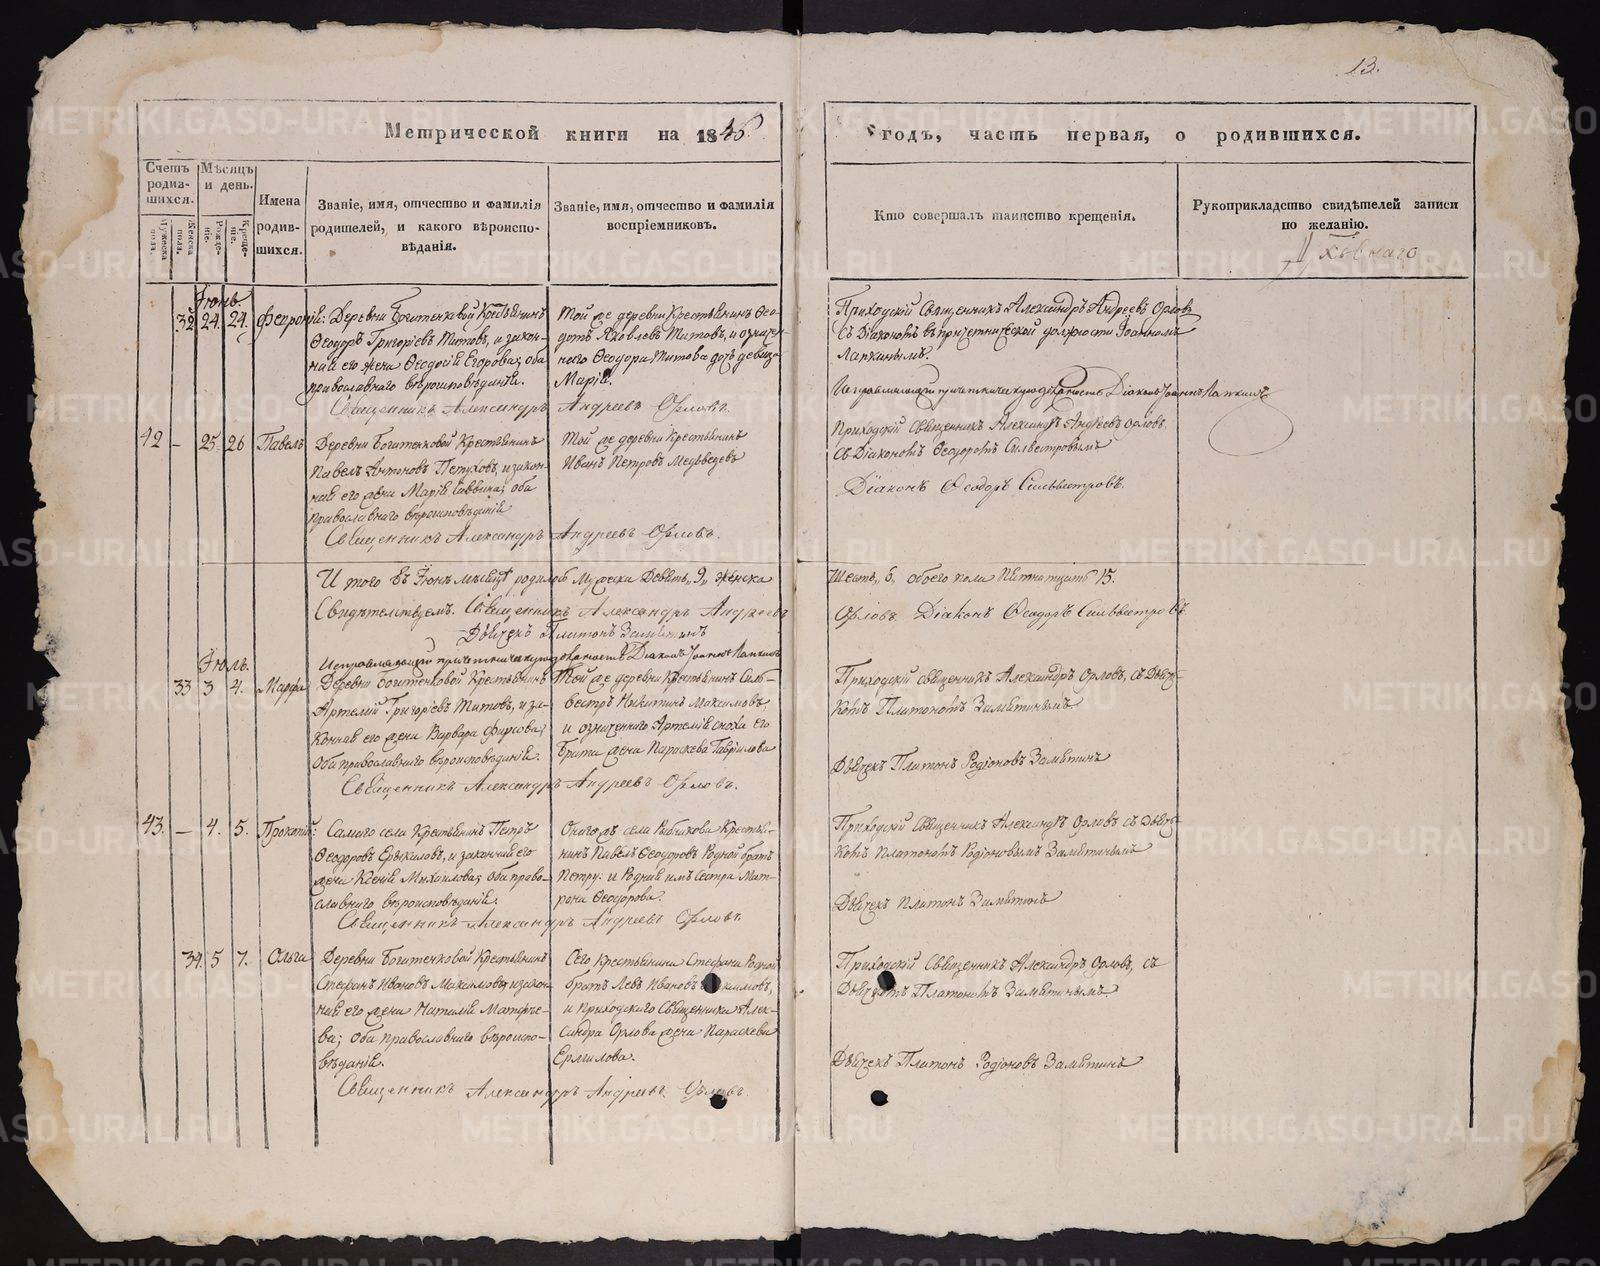 13.
Метрической книги на 1846 годъ, часть первая, о родившихся.
Счетъ родив-
шихся.
Мѣсяцъ
и день.
Мужеска пола.
Женска пола.
Рожде-
ніе.
Креще-
ніе.
Имена
родив-
шихся.
Званіе, имя, отчество и фамилія
родителей, и какого вѣроиспо-
вѣданія.
Званіе, имя, отчество и фамилія
воспріемниковъ.
Кто совершалъ таинство крещенія.
Рукоприкладство свидѣтелей записи
по желанію.
Іюнь.
32 24. 24. Феѵроній:
Деревни Богатенковой Крестьянинъ
Ѳеодоръ Григорьевъ Титовъ, и закон-
ная его жена Ѳеодосія Егорова; оба
православнаго вѣроисповѣданія.
Той же деревни Крестьянинъ Ѳео-
дотъ Яковлевъ Титовъ, и означен-
наго Ѳеодора Титова дочь девица
Марія.
Священникъ Александръ Андреевъ Орловъ.
Приходскій Священникъ Александръ Андреевъ Орловъ
Съ Діакономъ въ причетнической должности Іоанномъ
Лапкинымъ.
Исправляющій причетническую должность Діаконъ Іоаннъ Лапкинъ
42 – 25 26 Павелъ
Деревни Богатенковой Крестьянинъ
Павелъ Антоновъ Петуховъ, и закон-
ная его жена Марія Саввина; оба
православнаго вѣроисповѣданія
Той же деревни Крестьянинъ
Иванъ Петровъ Медвѣдевъ
Священникъ Александръ Андреевъ Орловъ.
Приходскій Священникъ Александръ Андреевъ Орловъ.
Съ Діакономъ Ѳеодоромъ Сильвестровымъ
Діаконъ Ѳеодоръ Сильвестровъ.
И того въ Іюнѣ мѣсяцѣ родилось Мужеска Девять „9„ Женска
Шесть „6. обоего пола Пятнатцать 15.
Свидѣтельствуемъ. Священникъ Александръ Андреевъ
Орловъ. Діаконъ Ѳеодоръ Сильвестровъ.
Дьячекъ Платонъ Замятинъ
Исправляющій причетническую должность Діаконъ Іоаннъ Лапкинъ
Іюль.
33 3 4. Марфа
Деревни Богатенковой Крестьянинъ
Артемій Григорьевъ Титовъ, и за-
конная его жена Варвара Фирсова;
Оба православнаго вѣроисповѣданія.
Той же деревни Крестьянинъ Силь-
вестръ Никитинъ Максимовъ,
и означеннаго Артемія сноха его
брата жена Параскева Гаврилова
Священникъ Александръ Андреевъ Орловъ.
Приходскій священникъ Александръ Орловъ, съ Дьяч-
комъ Платономъ Замятинымъ
Дьячекъ Платонъ Родіоновъ Замятинъ
43. – 4. 5. Прокопій:
Самаго села Крестьянинъ Петръ
Ѳеодоровъ Ерыкаловъ, и законная его
жена Ксенія Михайлова; оба право-
славнаго вѣроисповѣданія.
Онаго жъ села Рыбникова Крестья-
нинъ Павелъ Ѳеодоровъ Родной братъ
Петру: и Родная имъ Сестра Мат-
рона Ѳеодорова.
Священникъ Александръ Андреевъ Орловъ.
Приходскій Священникъ Александръ Орловъ съ Дьяч-
комъ Платономъ Родіоновымъ Замятинымъ
Дьячекъ Платонъ Замятинъ
34. 5 7. Ольга
Деревни Богатенковой Крестьянинъ
Стефанъ Ивановъ Максимовъ и закон-
ная его жена Наталія Матфѣе-
ва; оба православнаго вѣроиспо-
вѣданія.
Сего Крестьянина Стефана Родной
братъ Левъ Ивановъ Максимовъ,
и Приходскаго Священника Алек-
сандра Орлова жена Параскева
Священникъ Александръ Андреевъ Орловъ.
Приходскій Священникъ Александръ Орловъ, съ
Дьячкомъ Платономъ Замятинымъ.
Дьячекъ Платонъ Родіоновъ Замятинъ
METRIKI.GASO-URAL.RU